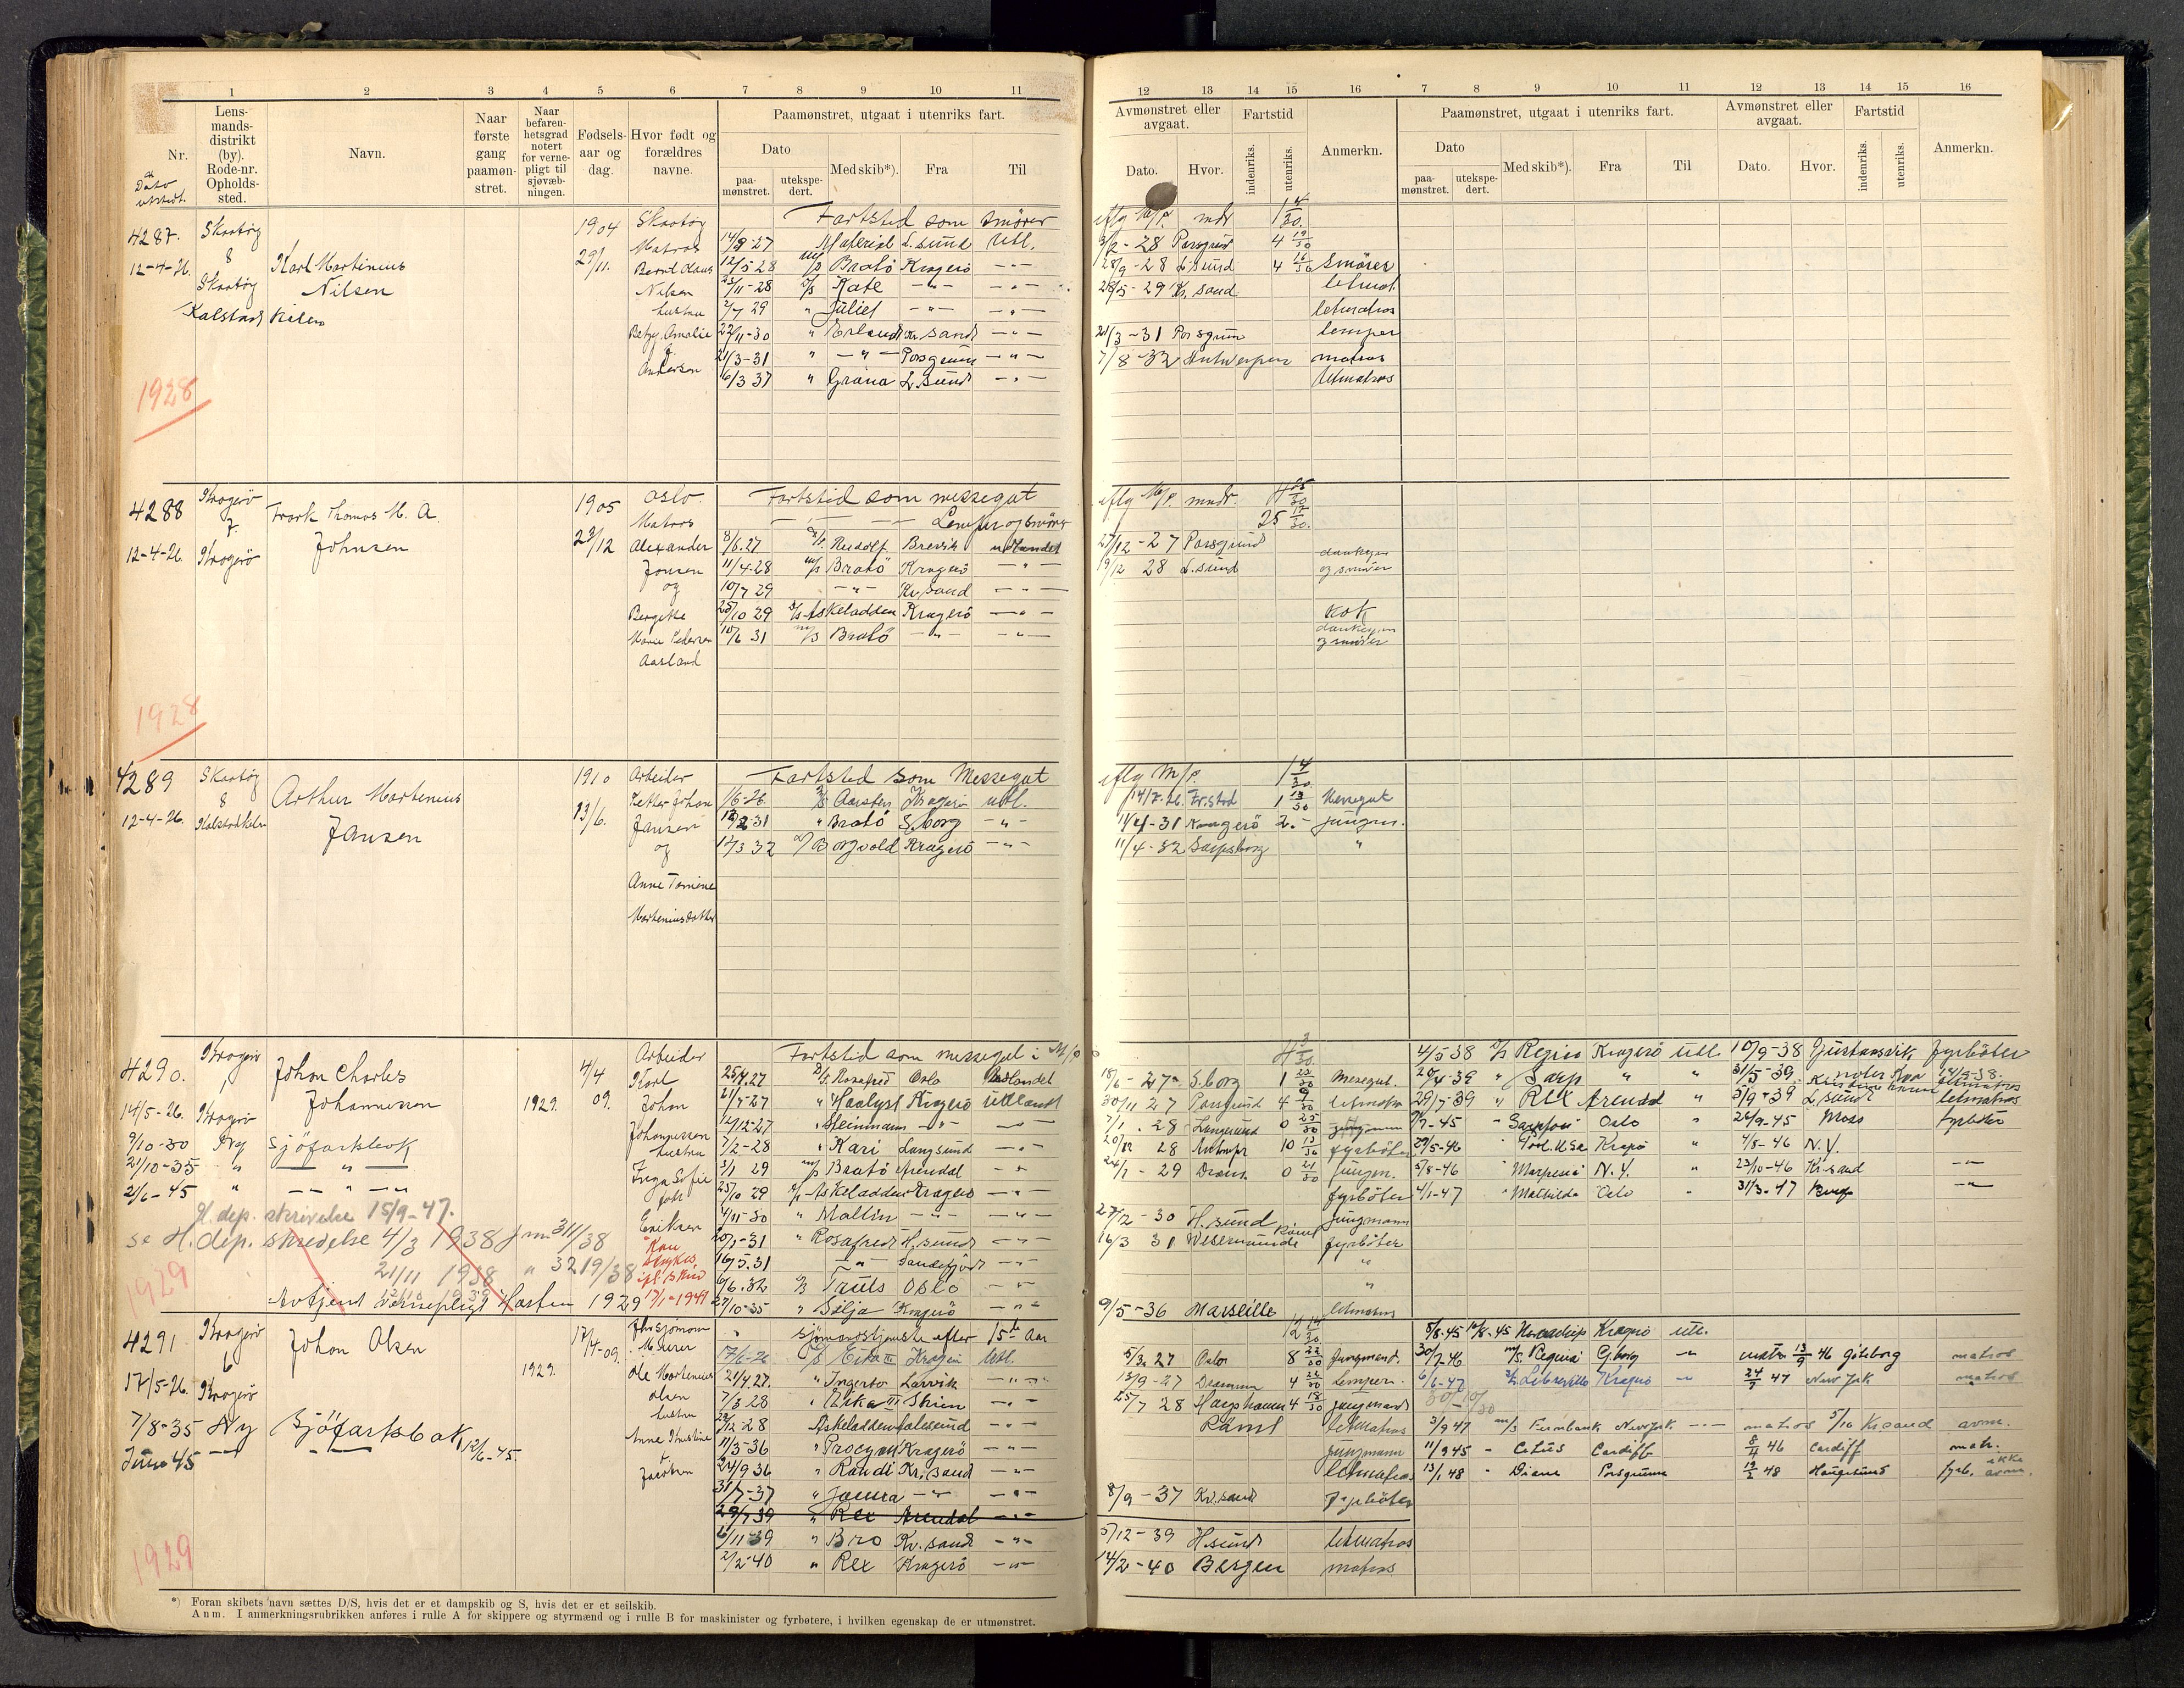 1 2 3 4 5 6 7 8 9 10 11
Nr.
Dato utstedt.
Lensmandsdistrikt (by). Rode-nr. Opholdssted.
Navn.
Naar første gang paamønstret.
Naar befarenhetsgrad notert for vernepligt til sjøvæbningen.
Fødselsaar og dag.
Hvor født og forældres navne.
Paamønstret, utgaat i utenriks fart.
Dato
paamønstret. utekspedert.
Med skib*). Fra Til
12 13 14 15 16 7 8 9 10 11 12 13 14 15 16
Avmønstret eller avgaat. Fartstid
Dato. Hvor. indenriks. utenriks. Anmerkn.
Paamønstret, utgaat i utenriks fart.
Dato
paamønstret. utekspedert. Med skib*). Fra Til
Avmønstret eller avgaat. Fartstid
Dato. Hvor. indenriks. utenriks. Anmerkn.
4287. 12-4-26.
Skaatøy 8 Skaatøy
Kalstadkilen
Karl Martinius Nilsen
1904 29/11.
Skaatøy Matros Bernt Klaus Nilsen hustru Betzy Amalie f. Andersen
Fartstid som smører eflg M/P. mdr 1 4/30.
14/9 27 Material L.sund Utl. 3/2-28 Porsgrund 4 19/30
12/5 28 m/s Bratö Kragerö -"- 28/9-28 L.sund 4 16/30 Smörer
23/11-28 D/S Kate -"- -"- 28/5-29 Kr. sand letmat.
2/7 29 " Juliet -"- -"- letmatros
22/11-30 " Erland Kr. sand -"- 21/3-31 Porsgrunn lemper
21/3-31 " -"- Porsgrunn -"- 7/8-32 Antwerpen matros
6/3 37 " Grana L.sund -"- letmatros
1928
4288 12-4-26.
Kragerö 7. Kragerö
Frank Thomas M. A. Johnsen
1905 23/12
Oslo Matros Alexander Jonsen og Bergitte Marie Pedersen Aasland
Fartstid som messegut eflg M/P. mndr. 4 25/30
-"- Lemper og smører 25 12/30.
8/6.27 D/S. Rudolf Brevik utlandet 27/12-27 Porsgrund
11/4-28 m/s Bratö Kragerö -"- 9/12 28 L.sund dankeym og smörer
10/7 29 -"- Kr. sand -"-
25/10 29 D/S Askeladden Kragerö -"- kok
10/6 31 m/s Bratö -"- -"- dankeym og smörer
1928
4289 12-4-26.
Skaatøy 8 Kalstadkilen
Arthur Martenius Jansen
1910 13/6.
Arbeider Petter Johan Jansen og Anne Tomine Marteniusdatter
Fartstid som Messegut eflg M/P. 1 4/30
1/6-26. D/S Aarsten Kragerö utl. 14/7.26. Fr.stad 1 13/30 Messegut
12/2-31 " Bratö S.borg -"- 11/4-31 Kragerö 2.- jungm.
12/3 32 D/S Borgvold Kragerö -"- 11/4-32 Sarpsborg "
4290. 14/5-26. 9/10-30 21/10-35 21/6-45
Kragerö 1 Kragerö
Ny Sjöfartsbok
" -"-
" -"-
Johan Charles Johannessen
1929. 4/4 09.
Arbeider Karl Johan Johannessen hustru Inga Sofie född Eriksen
H.dep. skrivelse 15/9-47.
se H.dep. skrivelse 4/3 1938 jnr 311/38
21/11 1938 " 3219/38
Avtjent Vernepligt Høsten 1929
1929
Fartstid som messegut i M/P 4 3/30.
25/4.27 D/S. Rosafred Oslo Utlandet 18/6-27 S.borg 1 23/30 Messegut.
21/7-27 " Haalyst Kragerö Utlandet 30/11 27 Porsgrund 4 9/30 letmatros
12/12-27 " Steinmann -"- -"- 7/1.28 Langesund 0 25/30 jungmann
7/2-28 " Kari Langsund -"- 20/12 28 Antwpr 10 13/30 fyrböter
3/1 29 m/s Bratö Arendal -"- 24/1-29 Dram. 0 21/30 Jungm.
25/10 29 D/S Askeladden Kragerö -"- fyrböter
4/11-30 " Mallin -"- -"- 27/12-30 H.sund Jungmann
20/1-31 " Rosafred H.sund -"- 16/3 31 Wesermünde fyrböter
16/5.31 -"- Sandefjord -"- "
6/6.32 D/S Truls Oslo -"- "
22/10-35 " Silja Kragerö -"- 9/5-36 Marseille letmatros
4/5 38 D/S Regin Kragerö Utl. 10/9-38 Gustavsvik fyrböter
20/4-39 " Sarp " " 31/5-39
29/7-39 " Rex Arendal " 5/9-39 L.sund letmatros
9/7-45 " Sarpfoss Oslo " 26/9-45 Moss fyrböter
29/5-46 Kragerö " 4/8-46 N.Y.
5/8-46 " Marpesia N.Y. " 23/10-46 Kr.sand -"-
4/1-47 " Mathilda Oslo " 31/3-47 -"-
4291 17/5-26. 7/8-35 Juni 45
Kragerö 6 Kragerö
Ny Sjöfartsbok
-"- -"- 12/6-45.
Johan Olsen
1929. 17/4-09.
Murer Ole Martenius Olsen hustru Anne Kirstine f. Jacobsen
1929
Sjömandstjeneste efter 15de Aar 12 14/30
17/6-26 D/S Eika III Kragerö Utl. 5/3 27 Oslo 8 22/30 Jungmand.
21/4.27. " Ingerto Larvik -"- 13/9-27 Drammen 4 22/30 Lemper.
7/3 28 " Eika III Skien -"- 25/7 28 4 18/30 jungmand
Askeladden -"- letmatros
11/3-36 " Procyon Kragerö -"- Jungmann
24/9 36 " Randi Kr. sand -"- letmatros
31/7-37 -"- -"- 8/9-37 Kr. sand Fyrböter
29/7 39 " Rex Arendal -"-
6/11-39 " Bro Kr. sand -"- 5/12-39 H.sund letmatros
2/2-40 " Rex Kragerö -"- 14/2-40 Bergen matros
5/8-45 10/8-45 Kragerö utl.
30/7-46 m/s. Pequia G.borg -"- 13/9 46 Göteborg matros
6/6-47 Libreville Kragerö -"- 24/7 47 New York matros
3/9 47 m/s Fernbank New York -"- matros 5/10 Kr.sand avm.
11/9 45 " Cetus Cardiff 8/4 46 Cardiff matr.
13/1 48 " Diana Porsgrunn 13/2 48 Haugesund fyrb. ikke avm.
*) Foran skibets navn sættes D/S, hvis det er et dampskib og S, hvis det er et seilskib.
Anm. I anmerkningsrubrikken anføres i rulle A for skippere og styrmænd og i rulle B for maskinister og fyrbøtere, i hvilken egenskap de er utmønstret.